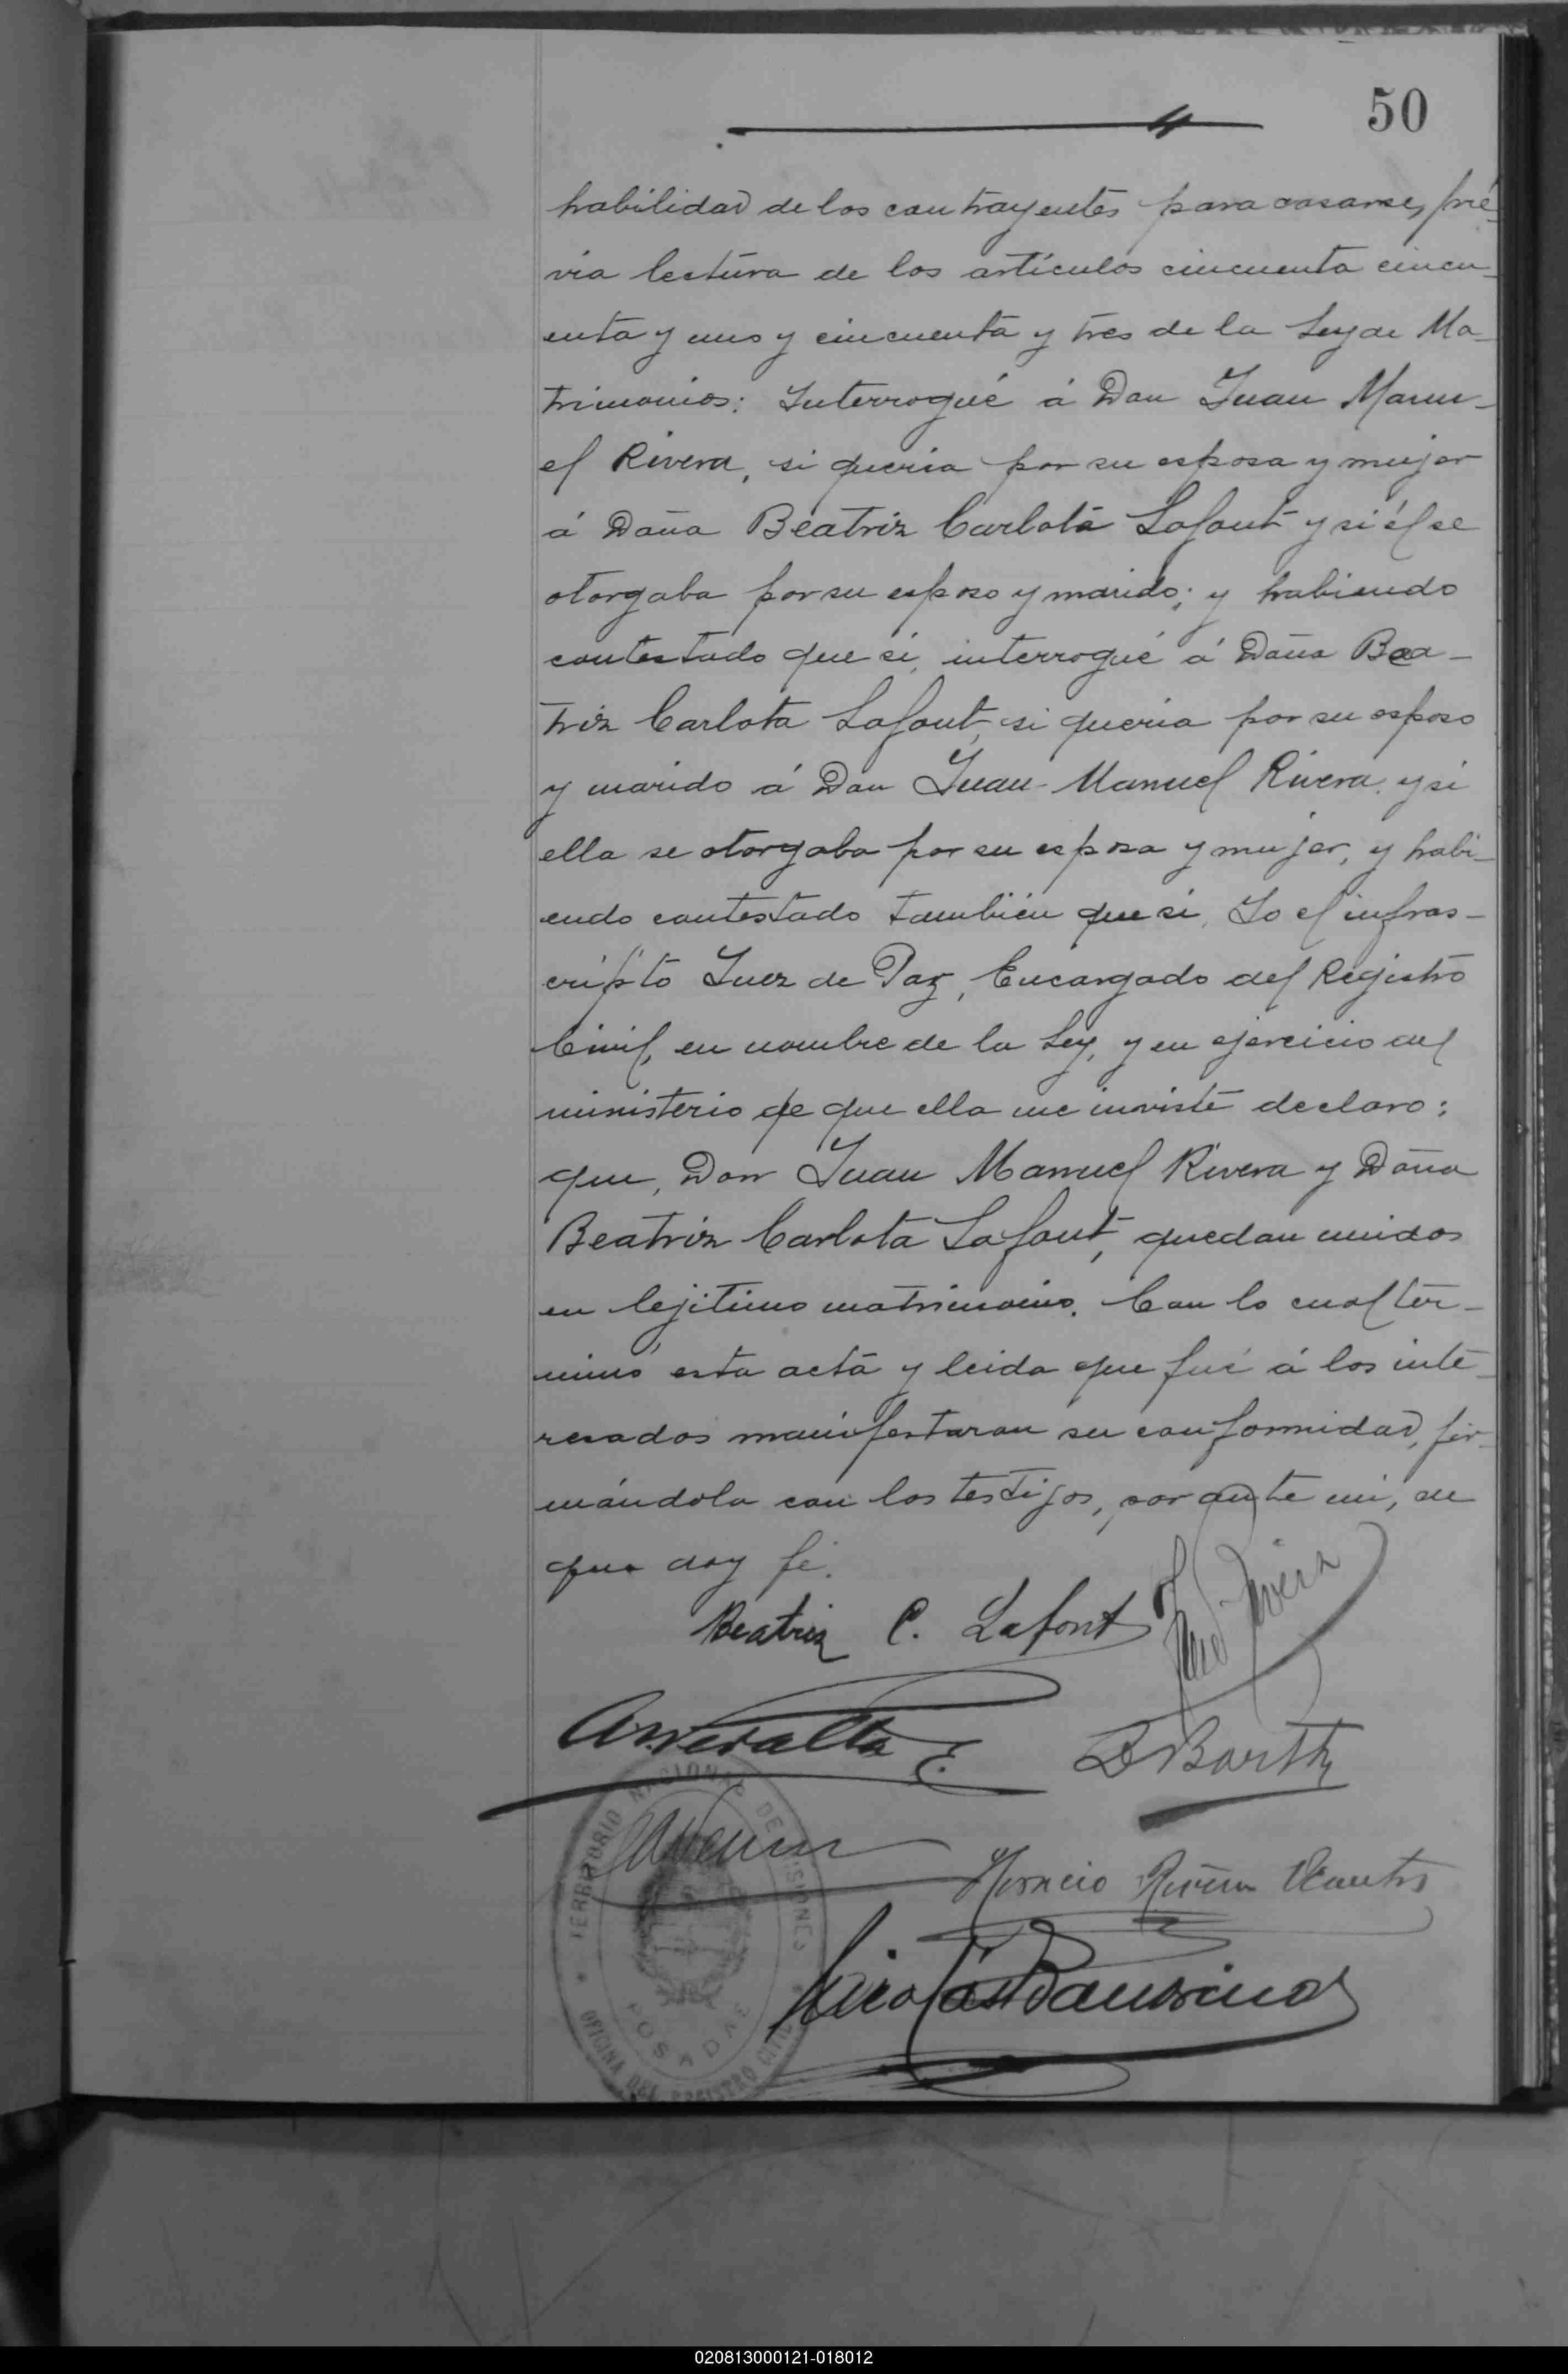 50
habilidad de los contrayentes para casarse, pré-
via lectura de los artículos cincuenta cincu-
enta y uno y cincuenta y tres de la Ley de Ma-
trimonios: Interrogué á Don Juan Manu-
el Rivera, si queria por su esposa y mujer
á Doña Beatriz Carlota Lafont y si él se
otorgaba por su esposo y marido; y habiendo
contestado que si, interrogué á Doña Bea-
triz Carlota Lafont, si queria por su esposo
y marido á Don Juan Manuel Rivera, y si
ella se otorgaba por su esposa y mujer, y habi-
endo contestado también que si, Yo el infras-
cripto Juez de Paz, Encargado del Registro
Civil, en nombre de la Ley, y en ejercicio del
ministerio de que ella me inviste declaro:
que, Don Juan Manuel Rivera y Doña
Beatriz Carlota Lafont, quedan unidos
en lejitimo matrimonio. Con lo cual ter-
minó esta acta y leida que fué á los inte-
resados manifestaron su conformidad, fir-
mándola con los testigos, por ante mi, de
que doy fé.
Beatriz C. Lafont
Rivera
Barth
Horacio Rivera
TERRITORIO NACIONAL DE MISIONES
POSADAS
OFICINA DEL REGISTRO CIVIL
020813000121-018012